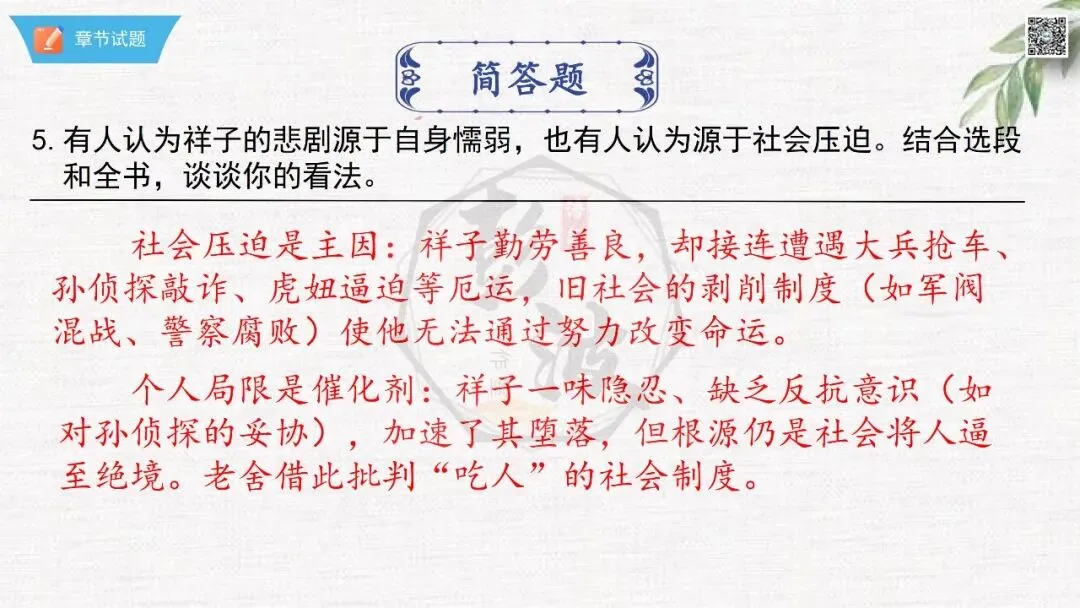 章节试题
简答题
5. 有人认为祥子的悲剧源于自身懦弱，也有人认为源于社会压迫。结合选段
和全书，谈谈你的看法。
社会压迫是主因：祥子勤劳善良，却接连遭遇大兵抢车、
孙侦探敲诈、虎妞逼迫等厄运，旧社会的剥削制度（如军阀
混战、警察腐败）使他无法通过努力改变命运。
个人局限是催化剂：祥子一味隐忍、缺乏反抗意识（如
对孙侦探的妥协），加速了其堕落，但根源仍是社会将人逼
至绝境。老舍借此批判“吃人”的社会制度。